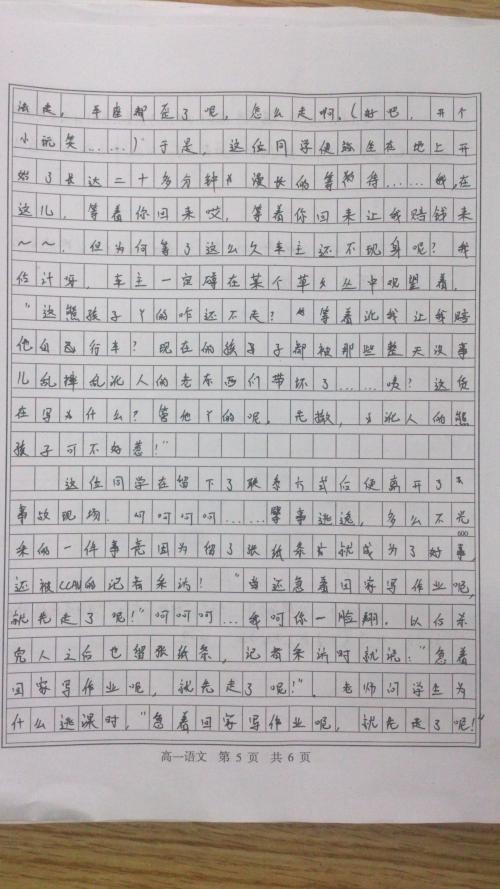 法走，车座都歪了呢，怎么走啊。(好吧，开个
小玩笑……)于是，这位同学便坐在地上开
始了长达二十多分钟漫长的等待……我，在
这儿，等着你回来哎，等着你回来让我赔钱来
～～，但为何等了这么久车主还不现身呢？我
估计呀，车主一定蹲在某个草丛中观望着，
"这熊孩子丫的咋还不走？等着讹我让我赔
他自行车？现在的孩子都被那些整天没事
儿乱摔乱讹人的老东西们带坏了……咦？这货
在写为什么？管他丫的呢，先撤，讹人的熊
孩子可不好惹！"
这位同学在留下了联系方式后便离开了
事故现场。呵呵呵呵……肇事逃逸，多么不光
600
采的一件事竟因为留了张纸条就成为了好事，
还被CCAV的记者采访！"当还急着回家写作业呢，
就先走了呢！"呵呵呵…我呵你一脸翔。以后杀
完人之后也留张纸条，记者采访时就说："急着
回家写作业呢，就先走了呢！"。老师问学生为
什么逃课时，"急着回家写作业呢，就先走了呢！"
高一语文 第 5 页 共 6 页